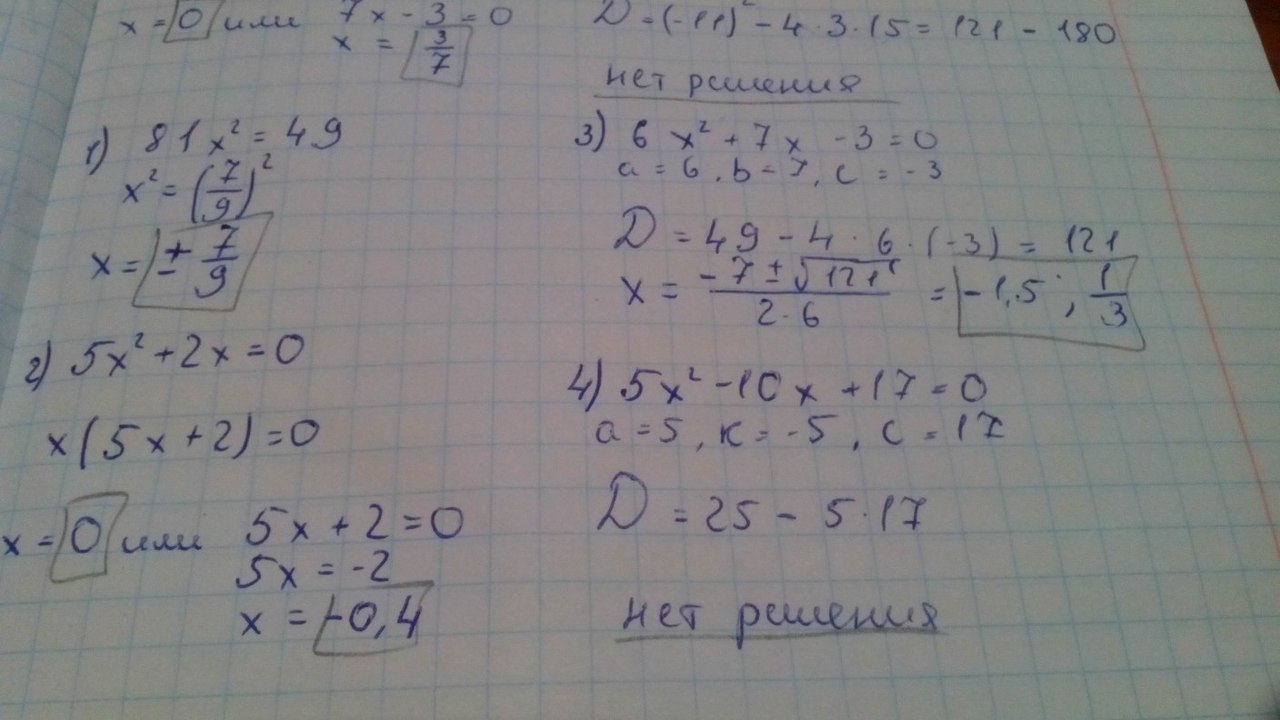 x = 0 или 7x - 3 = 0
x = 3/7
1) 81x² = 49
x² = (7/9)²
x = ± 7/9
2) 5x² + 2x = 0
x(5x + 2) = 0
x = 0 или 5x + 2 = 0
5x = -2
x = -0,4
D = (-11)² - 4 · 3 · 15 = 121 - 180
нет решения
3) 6x² + 7x - 3 = 0
a = 6, b = 7, c = -3
D = 49 - 4 · 6 · (-3) = 121
x = (-7 ± √121)/(2 · 6) = -1,5 ; 1/3
4) 5x² - 10x + 17 = 0
a = 5, к = -5, c = 17
D = 25 - 5 · 17
нет решения